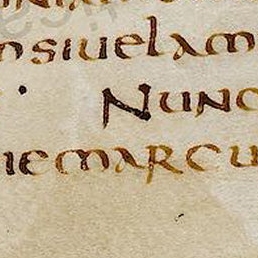 nsiuelam
Nunc
iemarcu